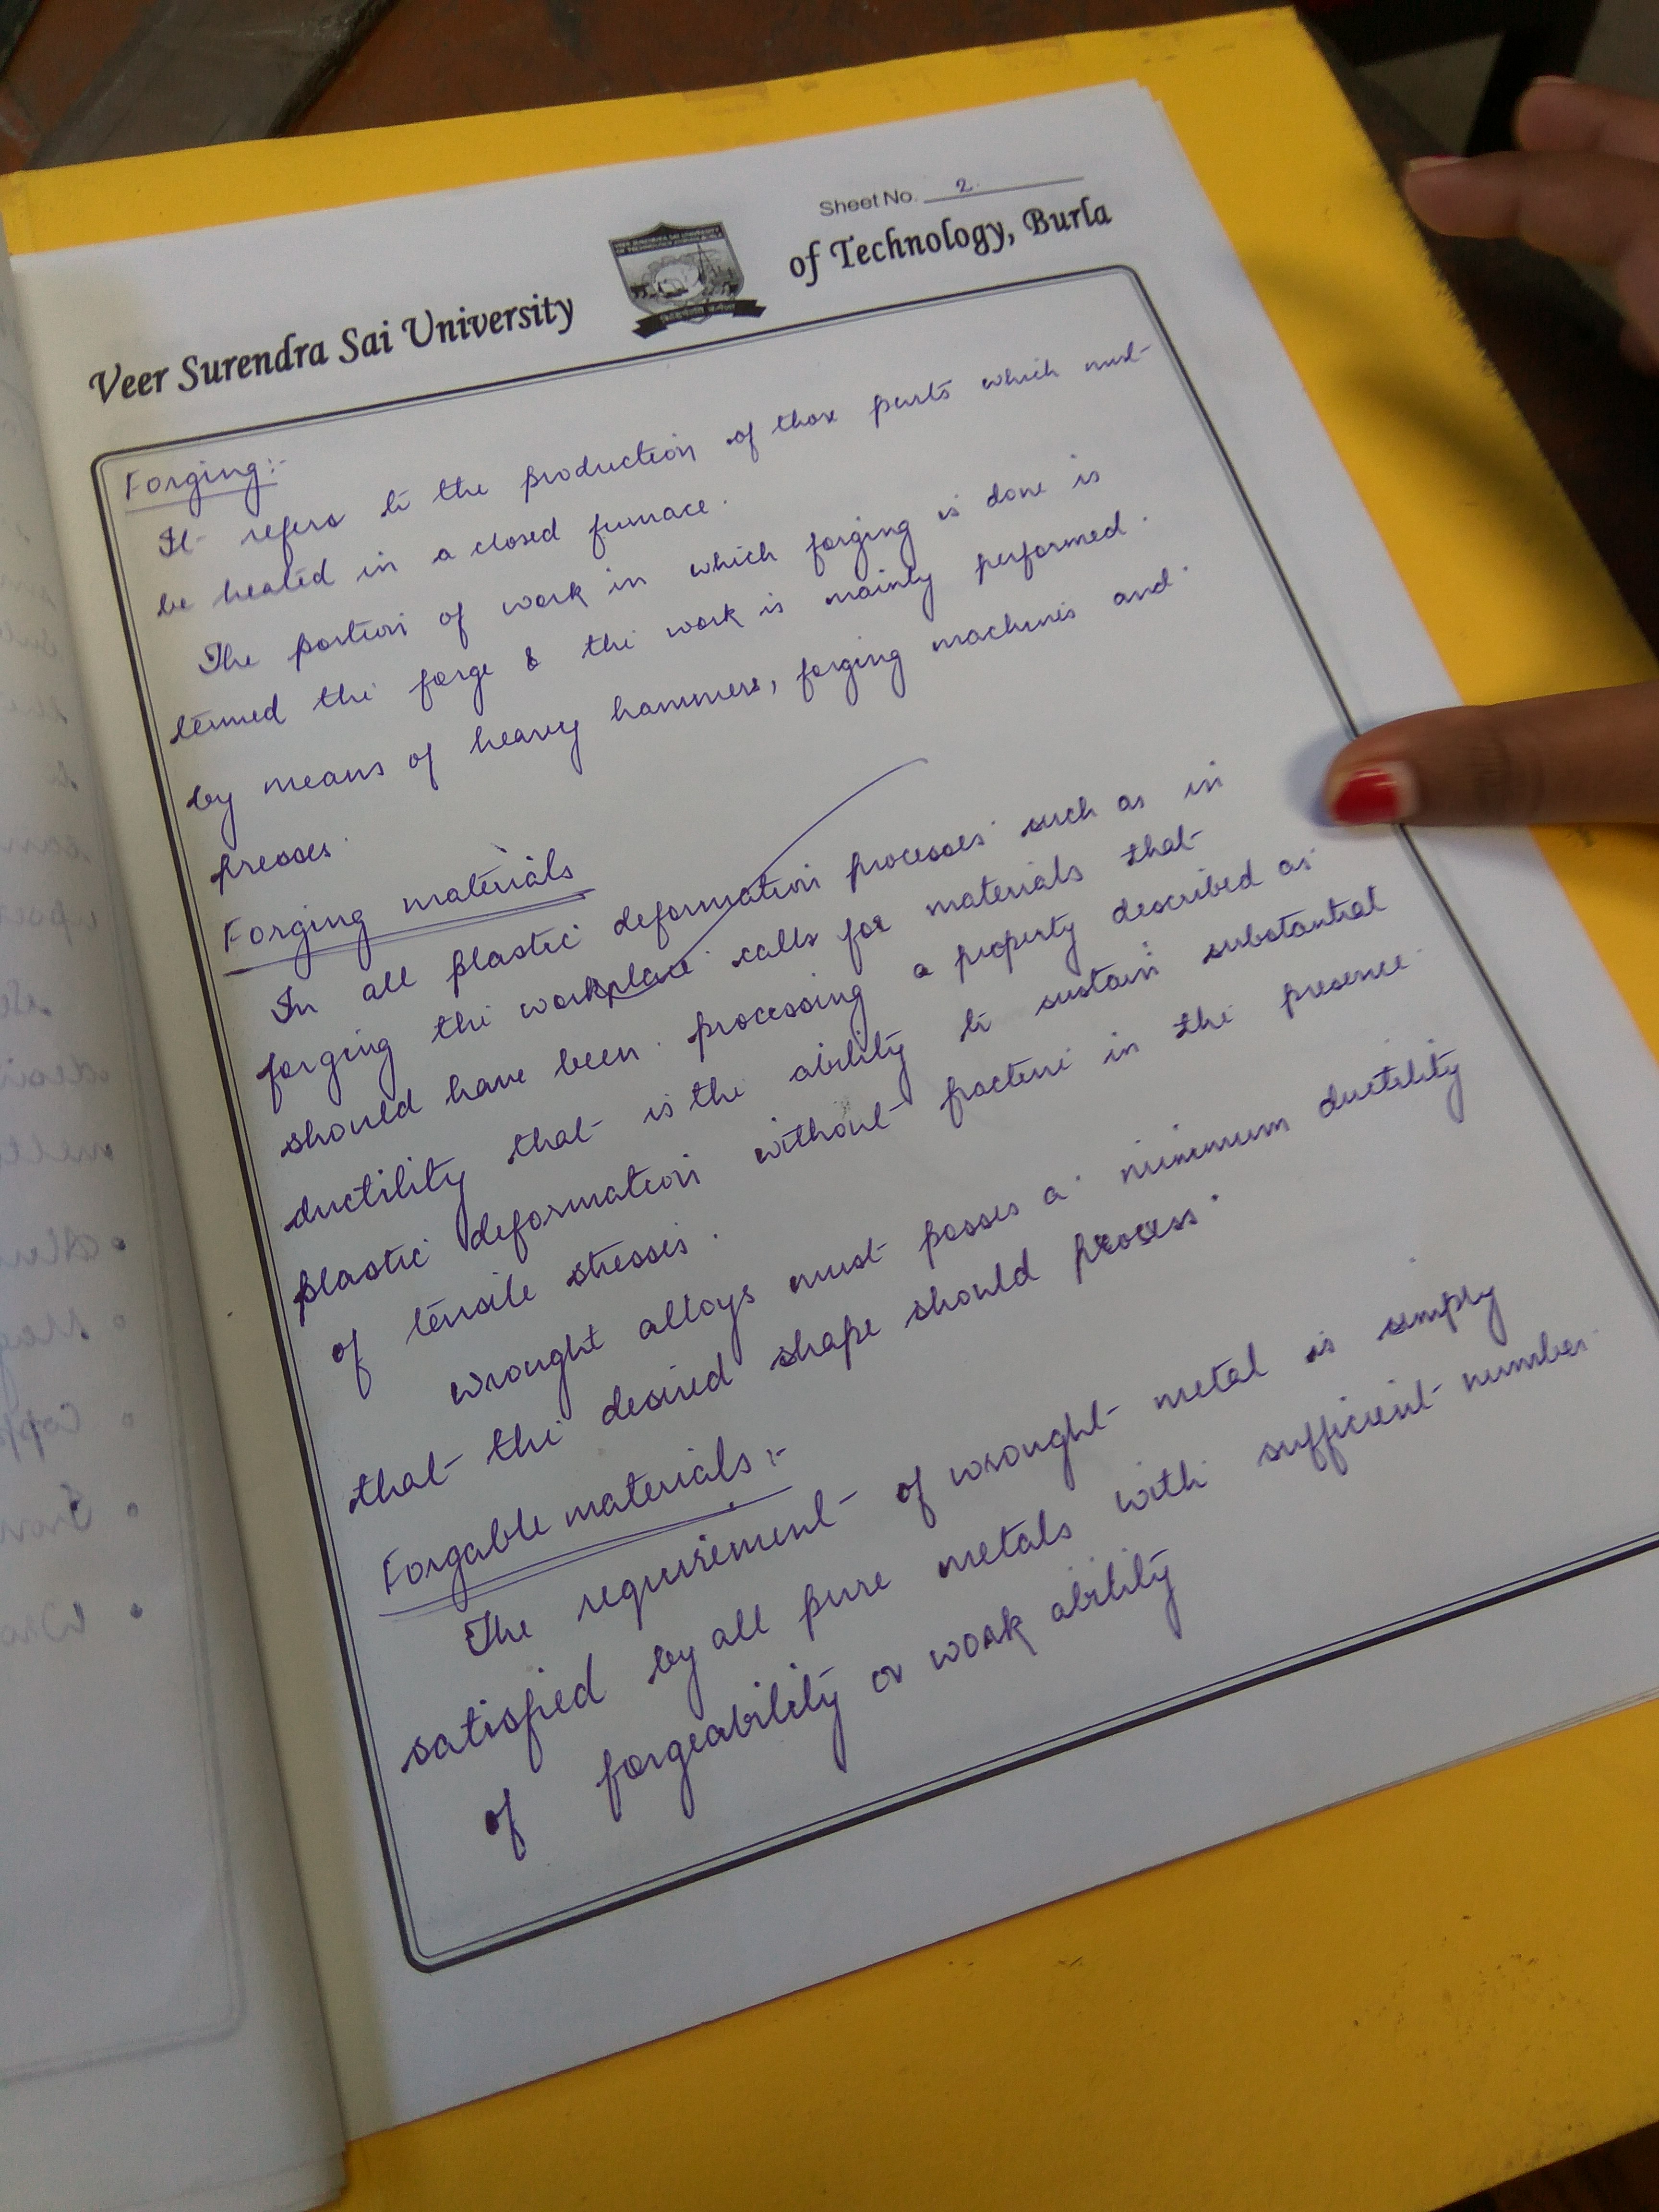 Sheet No. 2.
Veer Surendra Sai University of Technology, Burla
Forging:-
It refers to the production of those parts which must
be heated in a closed furnace.
The portion of work in which forging is done is
termed the forge & the work is mainly performed.
by means of heavy hammers, forging machines and
presses.
Forging materials
In all plastic deformation processes such as in
forging the workplace calls for materials that
should have been processing a property described as
ductility that is the ability to sustain substantial
plastic deformation without fracture in the presence
of tensile stresses.
wrought alloys must posses a minimum ductility
that the desired shape should process.
Forgable materials:-
The requirement of wrought metal is simply
satisfied by all pure metals with sufficient number
of forgeability or work ability